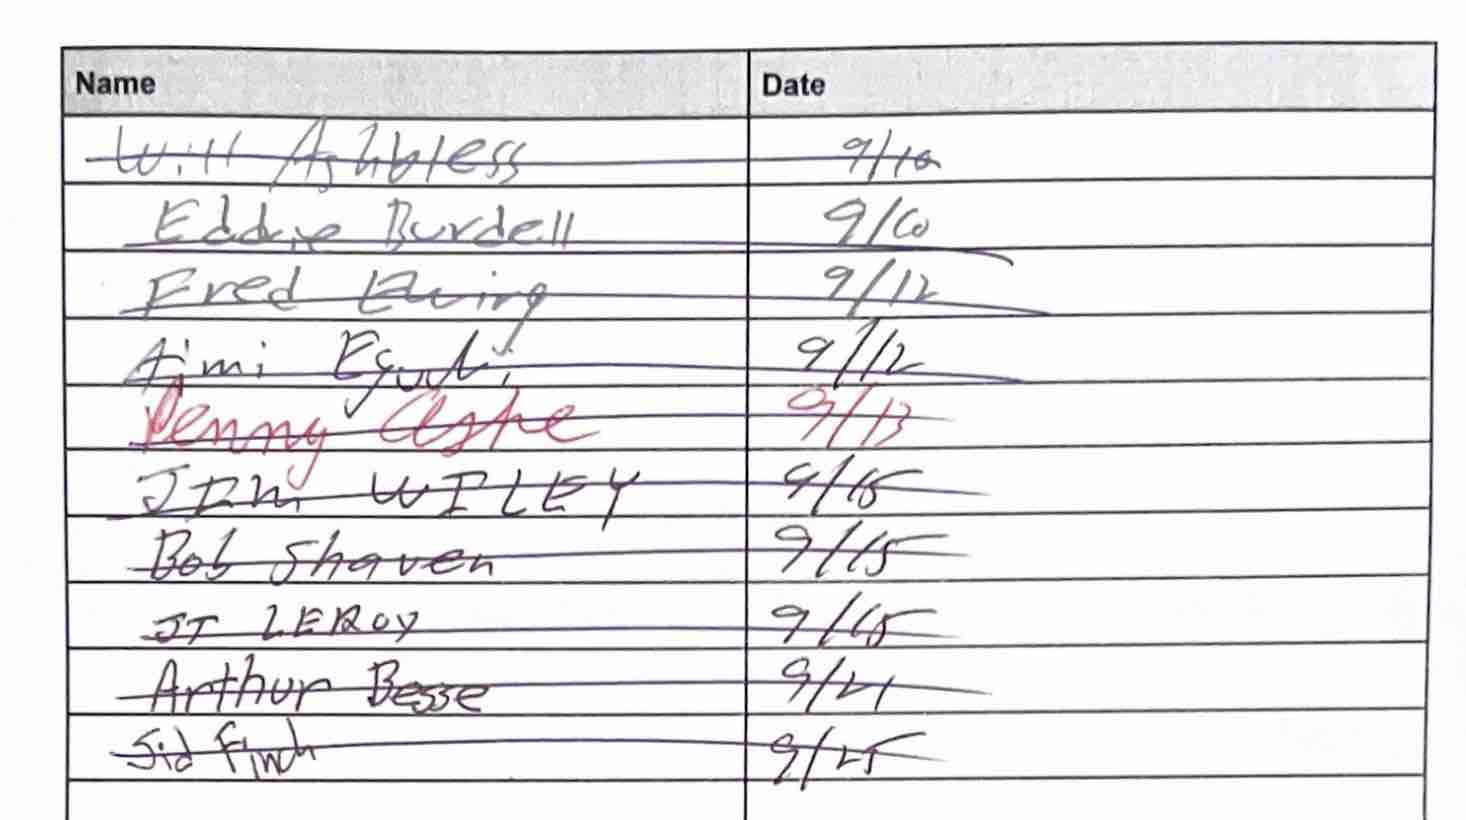 Name Date
Will Ashbless 9/10
Eddie Burdell 9/10
Fred Ewing 9/12
Aimi Eguchi 9/12
Penny Ashe 9/13
JIM WILEY 9/15
Bob Shaven 9/15
JT LEROY 9/15
Arthur Besse 9/21
Sid Finch 9/25